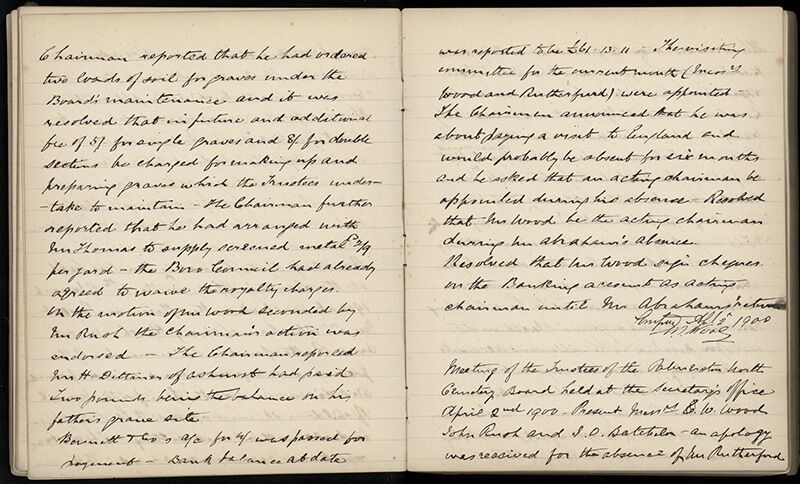 Chairman reported that he had ordered
two loads of soil for graves under the
Board's maintenance and it was
resolved that in future and additional
fee of 5/- for single graves and 8/- for double
sections be charged for making up and
preparing graves which the Trustees under-
-take to maintain - The Chairman further
reported that he had arranged with
Mr Thomas to supply screened metal @ 2/9
per yard - the Boro Council had already
agreed to waive the royalty charges.
On the motion of Mr Wood seconded by
Mr Rush the Chairman's action was
endorsed - The Chairman reported
Mr H. of Ashurst had paid
two pounds being the balance on his
father's grave site
Bennett & Co's a/c for was passed for
payment - Bank balance at date
was reported to be £61 13 11 The visiting
committee for the current month (Messrs
Wood and Rutherfurd) were appointed -
The Chairman announced that he was
about paying a visit to England and
would probably be absent for six months
and he asked that an acting chairman be
appointed during his absence - Resolved
that Mr Wood be the acting chairman
during Mr Abraham's absence
Resolved that Mr Wood sign cheques
on the Banking account as acting
chairman until Mr Abraham's return
1900
Meeting of the Trustees of the Palmerston North
Cemetery Board held at the Secretary's office
April 2nd 1900. Present Messrs E. W. Wood
John Rush and J. O. Batchelor - an apology
was received for the absence of Mr Rutherfurd